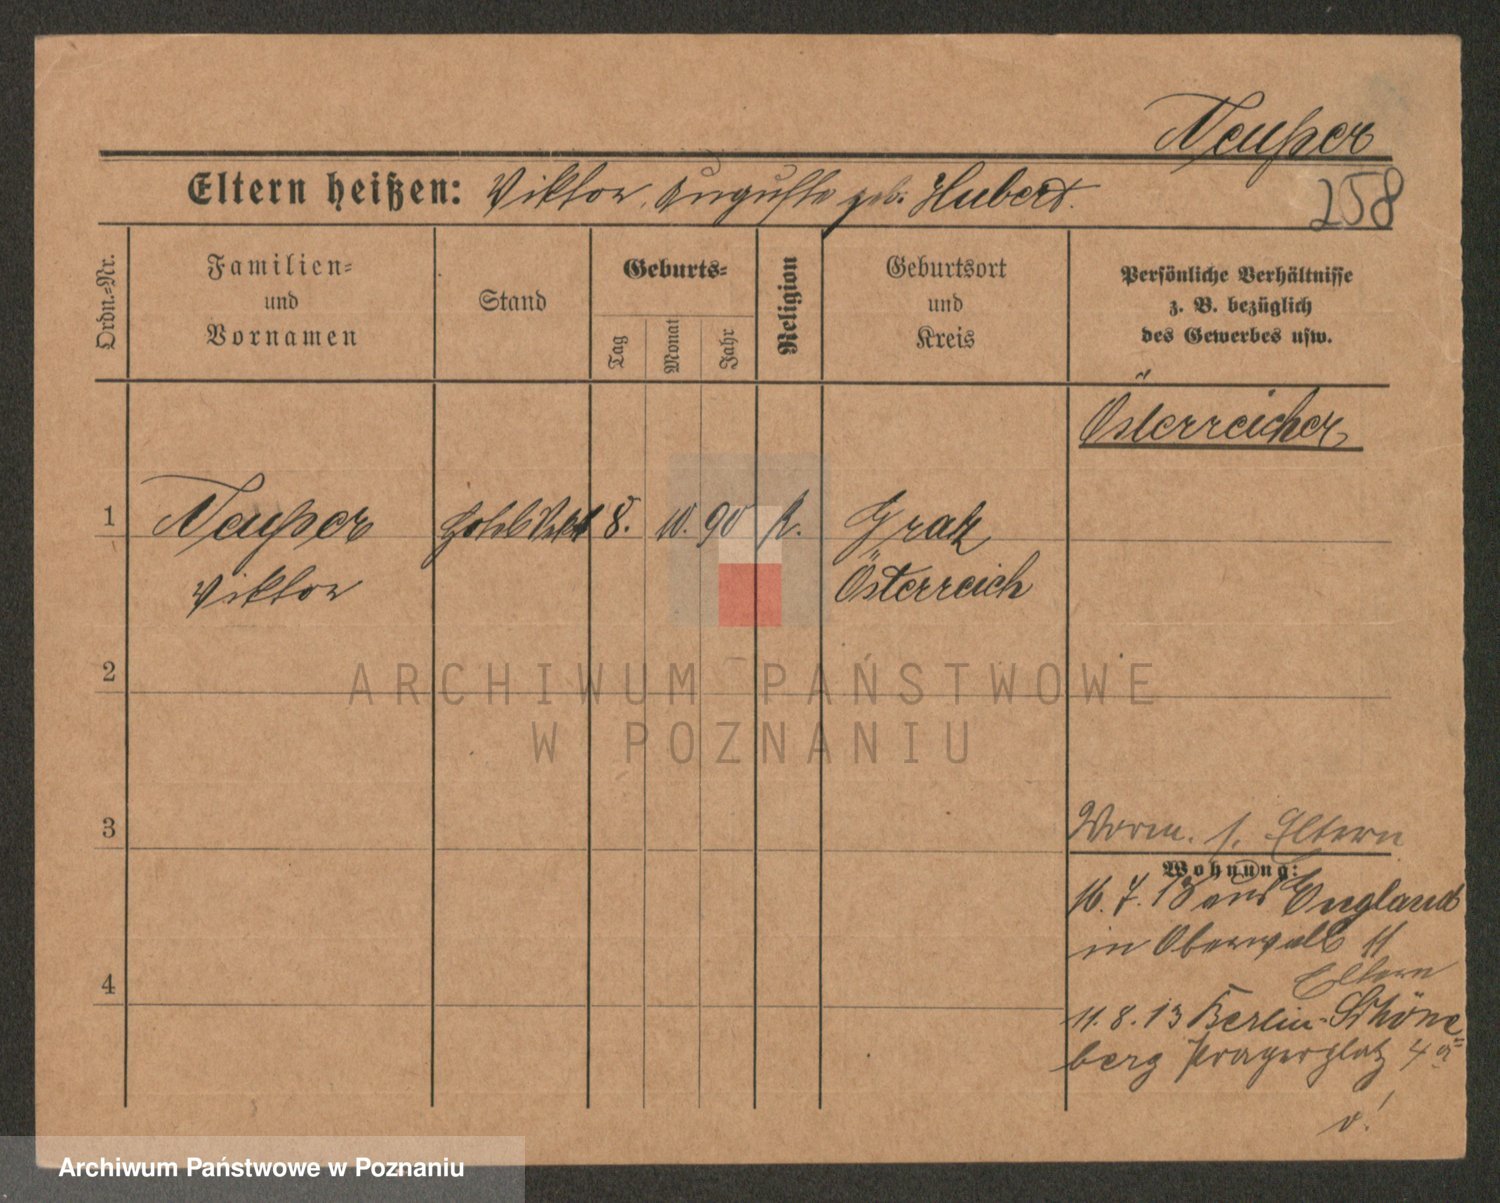 Neußer
Eltern heißen: Viktor, Auguste geb. Hubert.
258
Ordn.-Nr.
Familien-
und
Vornamen
Stand
Geburts-
Tag
Monat
Jahr
Religion
Geburtsort
und
Kreis
Persönliche Verhältnisse
z. B. bezüglich
des Gewerbes usw.
Österreicher
1
Neußer
8. 10. 90
k.
Graz
Viktor
Österreich
2
ARCHIWUM PAŃSTWOWE
W POZNANIU
3
Vorm. s. Eltern
Wohnung:
16. 7. 13 aus England
in Oberwall 11
Eltern
4
11. 8. 13 Berlin-Schöne-
berg Pragerplatz 4a
v!
Archiwum Państwowe w Poznaniu